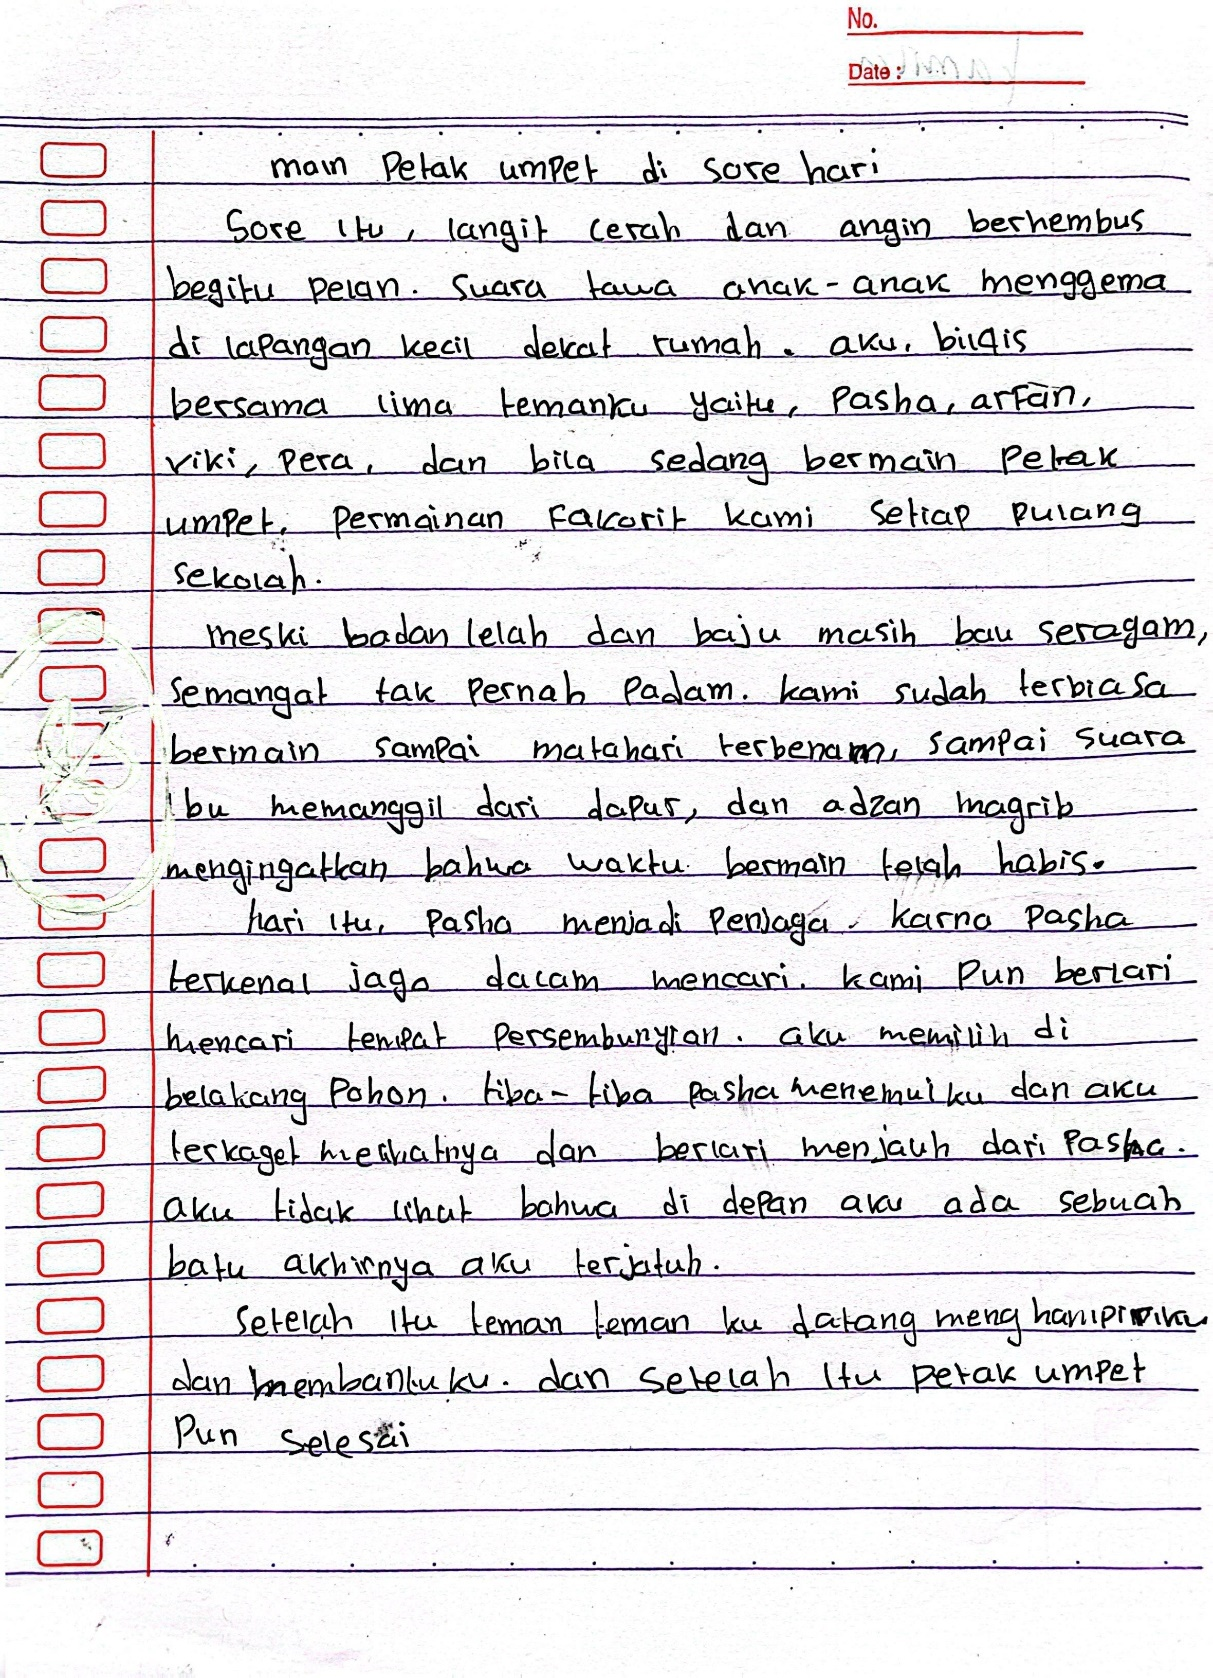 No.
Date :
main Petak umpet di sore hari
Sore itu, langit cerah dan angin berhembus
begitu pelan. Suara tawa anak-anak menggema
di lapangan kecil dekat rumah. aku, bilqis
bersama lima temanku yaitu, Pasha, arfan,
viki, Pera, dan bila sedang bermain Petak
umpet, Permainan Faforit kami setiap pulang
sekolah.
meski badan lelah dan baju masih bau seragam,
semangat tak Pernah Padam. kami sudah terbiasa
bermain sampai matahari terbenam, sampai suara
Ibu memanggil dari dapur, dan adzan magrib
mengingatkan bahwa waktu bermain telah habis.
hari itu, Pasha menjadi Penjaga. karna Pasha
terkenal jago dalam mencari. kami Pun berlari
mencari tempat Persembunyian. aku memilih di
belakang Pohon. tiba-tiba pasha menemuiku dan aku
terkaget melihatnya dan berlari menjauh dari Pasha.
aku tidak lihat bahwa di depan aku ada sebuah
batu akhirnya aku terjatuh.
Setelah itu teman teman ku datang meng
dan membantuku. dan setelah itu petak umpet
Pun selesai